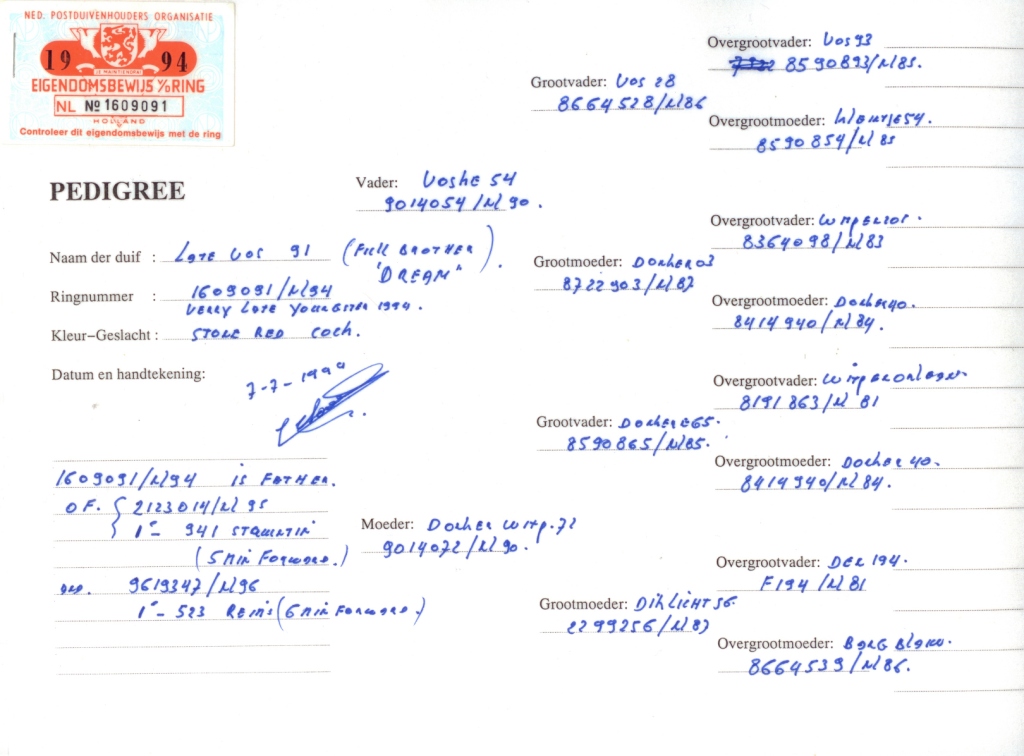 NED. POSTDUIVENHOUDERS ORGANISATIE
1994
JE MAINTIENDRAI
EIGENDOMSBEWIJS v/o RING
NL No 1609091
HOLLAND
Controleer dit eigendomsbewijs met de ring
PEDIGREE
Naam der duif : Late Vos 91 (Full Brother "Dream").
Ringnummer : 1609091/NL94
Verry Late Youngster 1994.
Kleur-Geslacht : Stone Red Cock.
Datum en handtekening: 7-7-1999
1609091/NL94 is Father.
OF. { 2123014/NL95
1e - 941 St Quentin
(5 min Forward.)
9619347/NL96
1e - 523 Reims (6 min Forward.)
Vader: Voske 54
9014054/NL90.
Moeder: Donker Witp. 72
9014072/NL90.
Grootvader: Vos 28
8664528/NL86
Grootmoeder: Donker 03
8722903/NL87
Grootvader: Donkere 65.
8590865/NL85.
Grootmoeder: Diklicht 56.
2299256/NL83
Overgrootvader: Vos 93
8590893/NL85.
Overgrootmoeder: Kleintje 54.
8590854/NL85
Overgrootvader:
8364098/NL83
Overgrootmoeder: Donker 40.
8414940/NL84.
Overgrootvader:
8191863/NL81
Overgrootmoeder: Donker 40.
8414940/NL84.
Overgrootvader: Der 194.
F194/NL81
Overgrootmoeder: Bong Blauw.
8664539/NL86.